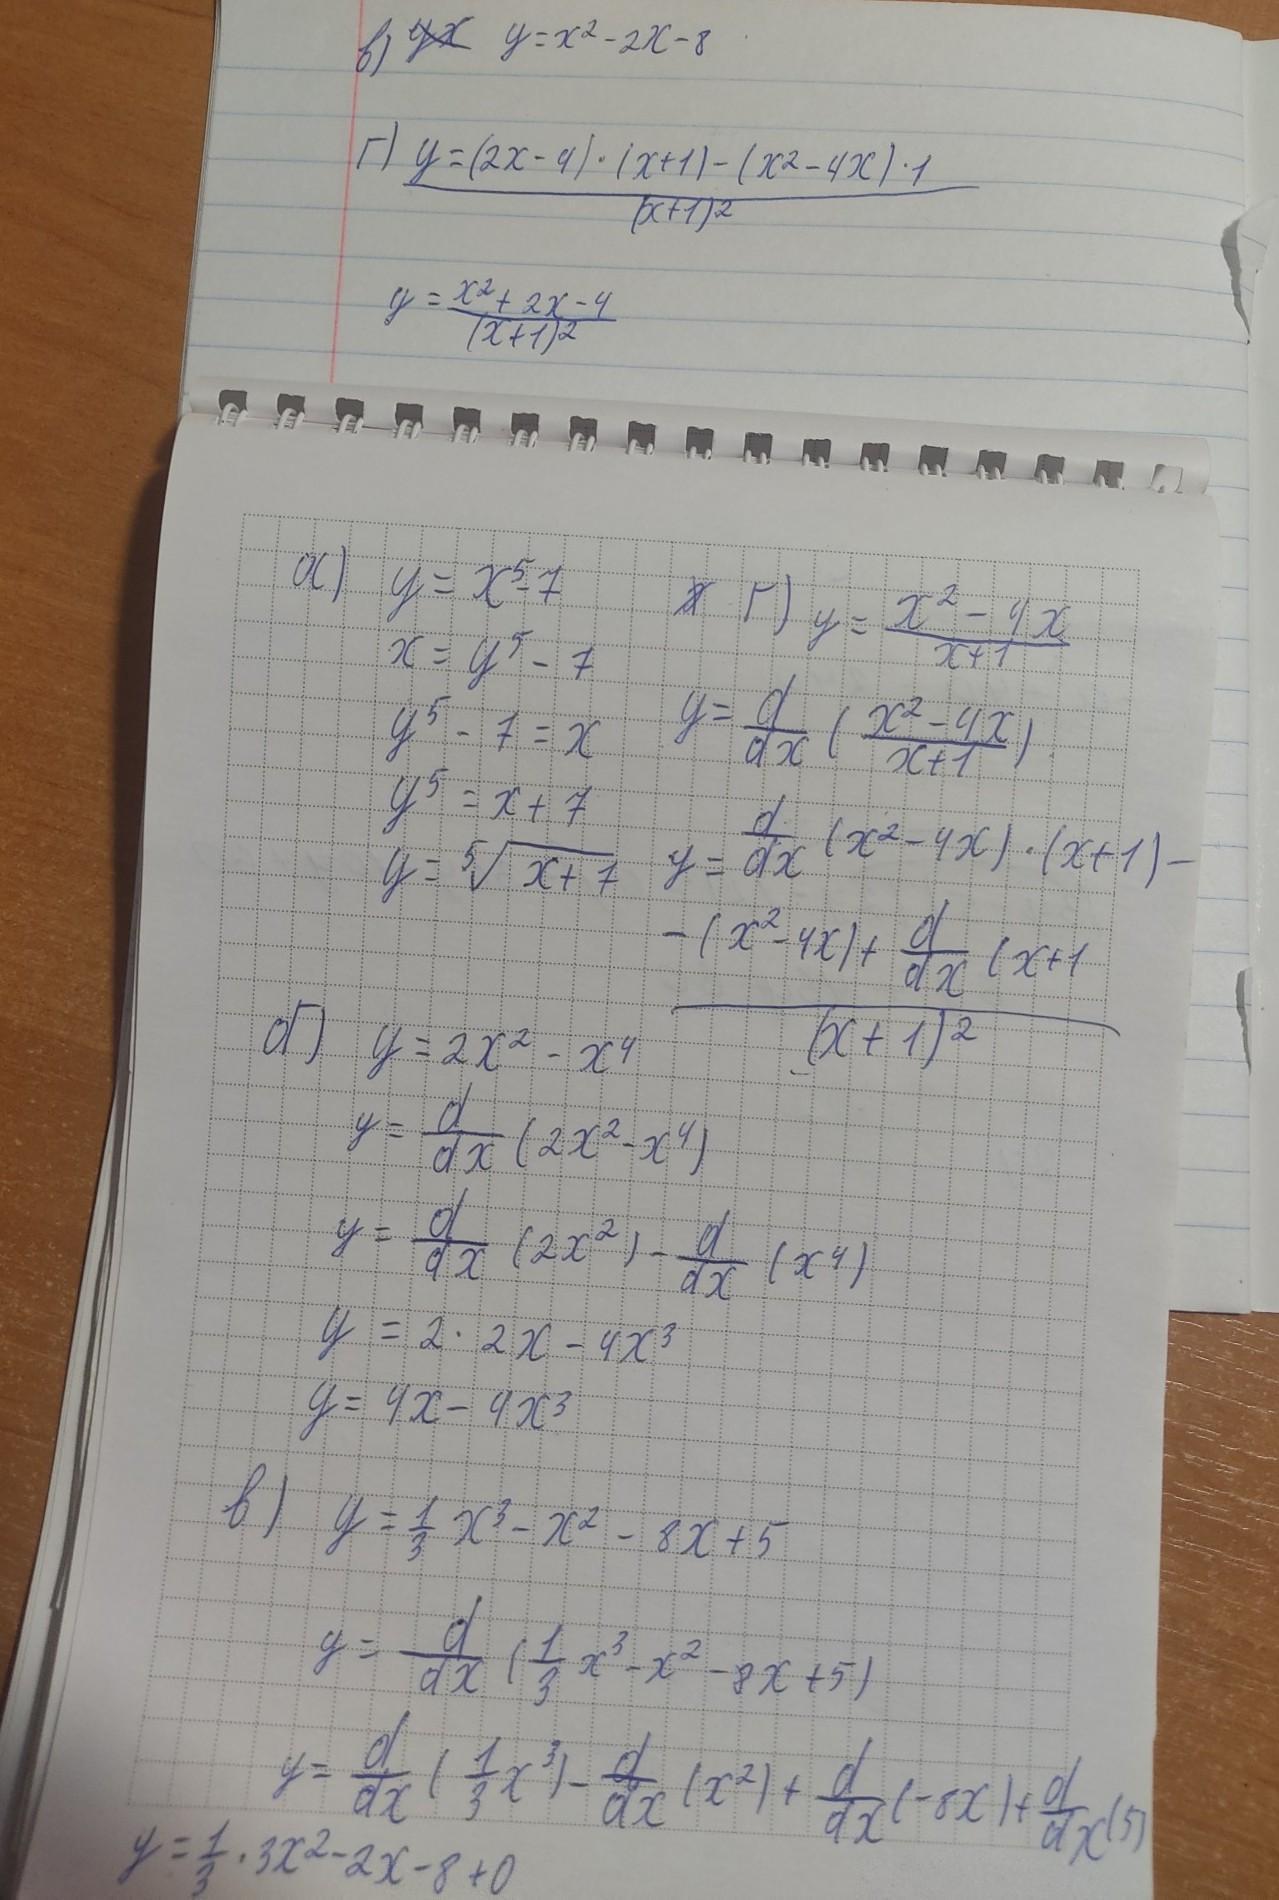 в) y = x² - 2x - 8
г) y = (2x - 4) · (x + 1) - (x² - 4x) · 1
(x + 1)²
y = x² + 2x - 4
(x + 1)²
а) y = x⁵ - 7
x = y⁵ - 7
y⁵ - 7 = x
y⁵ = x + 7
y = ⁵√x + 7
г) y = x² - 4x
x + 1
y = d/dx (x² - 4x / x + 1)
y = d/dx (x² - 4x) · (x + 1) -
- (x² - 4x) + d/dx (x + 1
(x + 1)²
б) y = 2x² - x⁴
y = d/dx (2x² - x⁴)
y = d/dx (2x²) - d/dx (x⁴)
y = 2 · 2x - 4x³
y = 4x - 4x³
в) y = 1/3 x³ - x² - 8x + 5
y = d/dx (1/3 x³ - x² - 8x + 5)
y = d/dx (1/3 x³) - d/dx (x²) + d/dx (-8x) + d/dx (5)
y = 1/3 · 3x² - 2x - 8 + 0